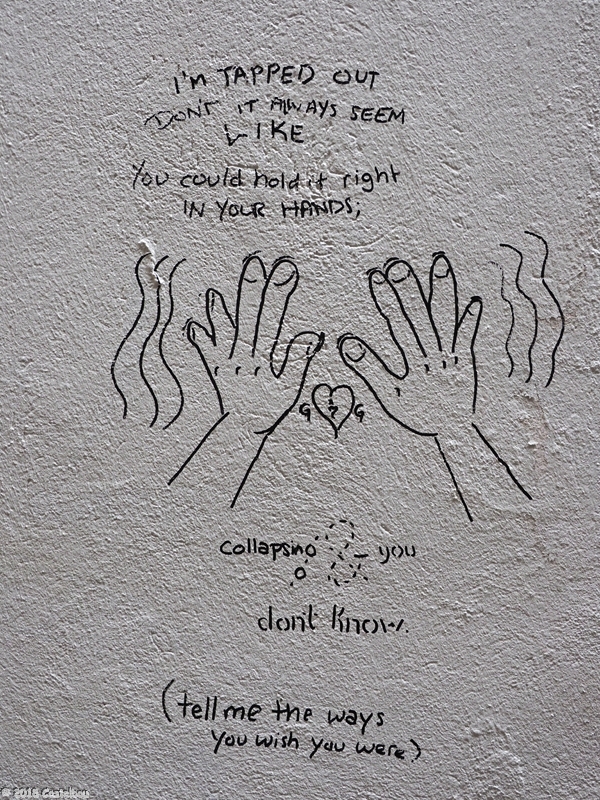 I'M TAPPED OUT
DON'T IT ALWAYS SEEM
LIKE
You could hold it right
IN YOUR HANDS,
collapsing
you
don't know.
(tell me the ways
you wish you were)
© 2018 Castelbou